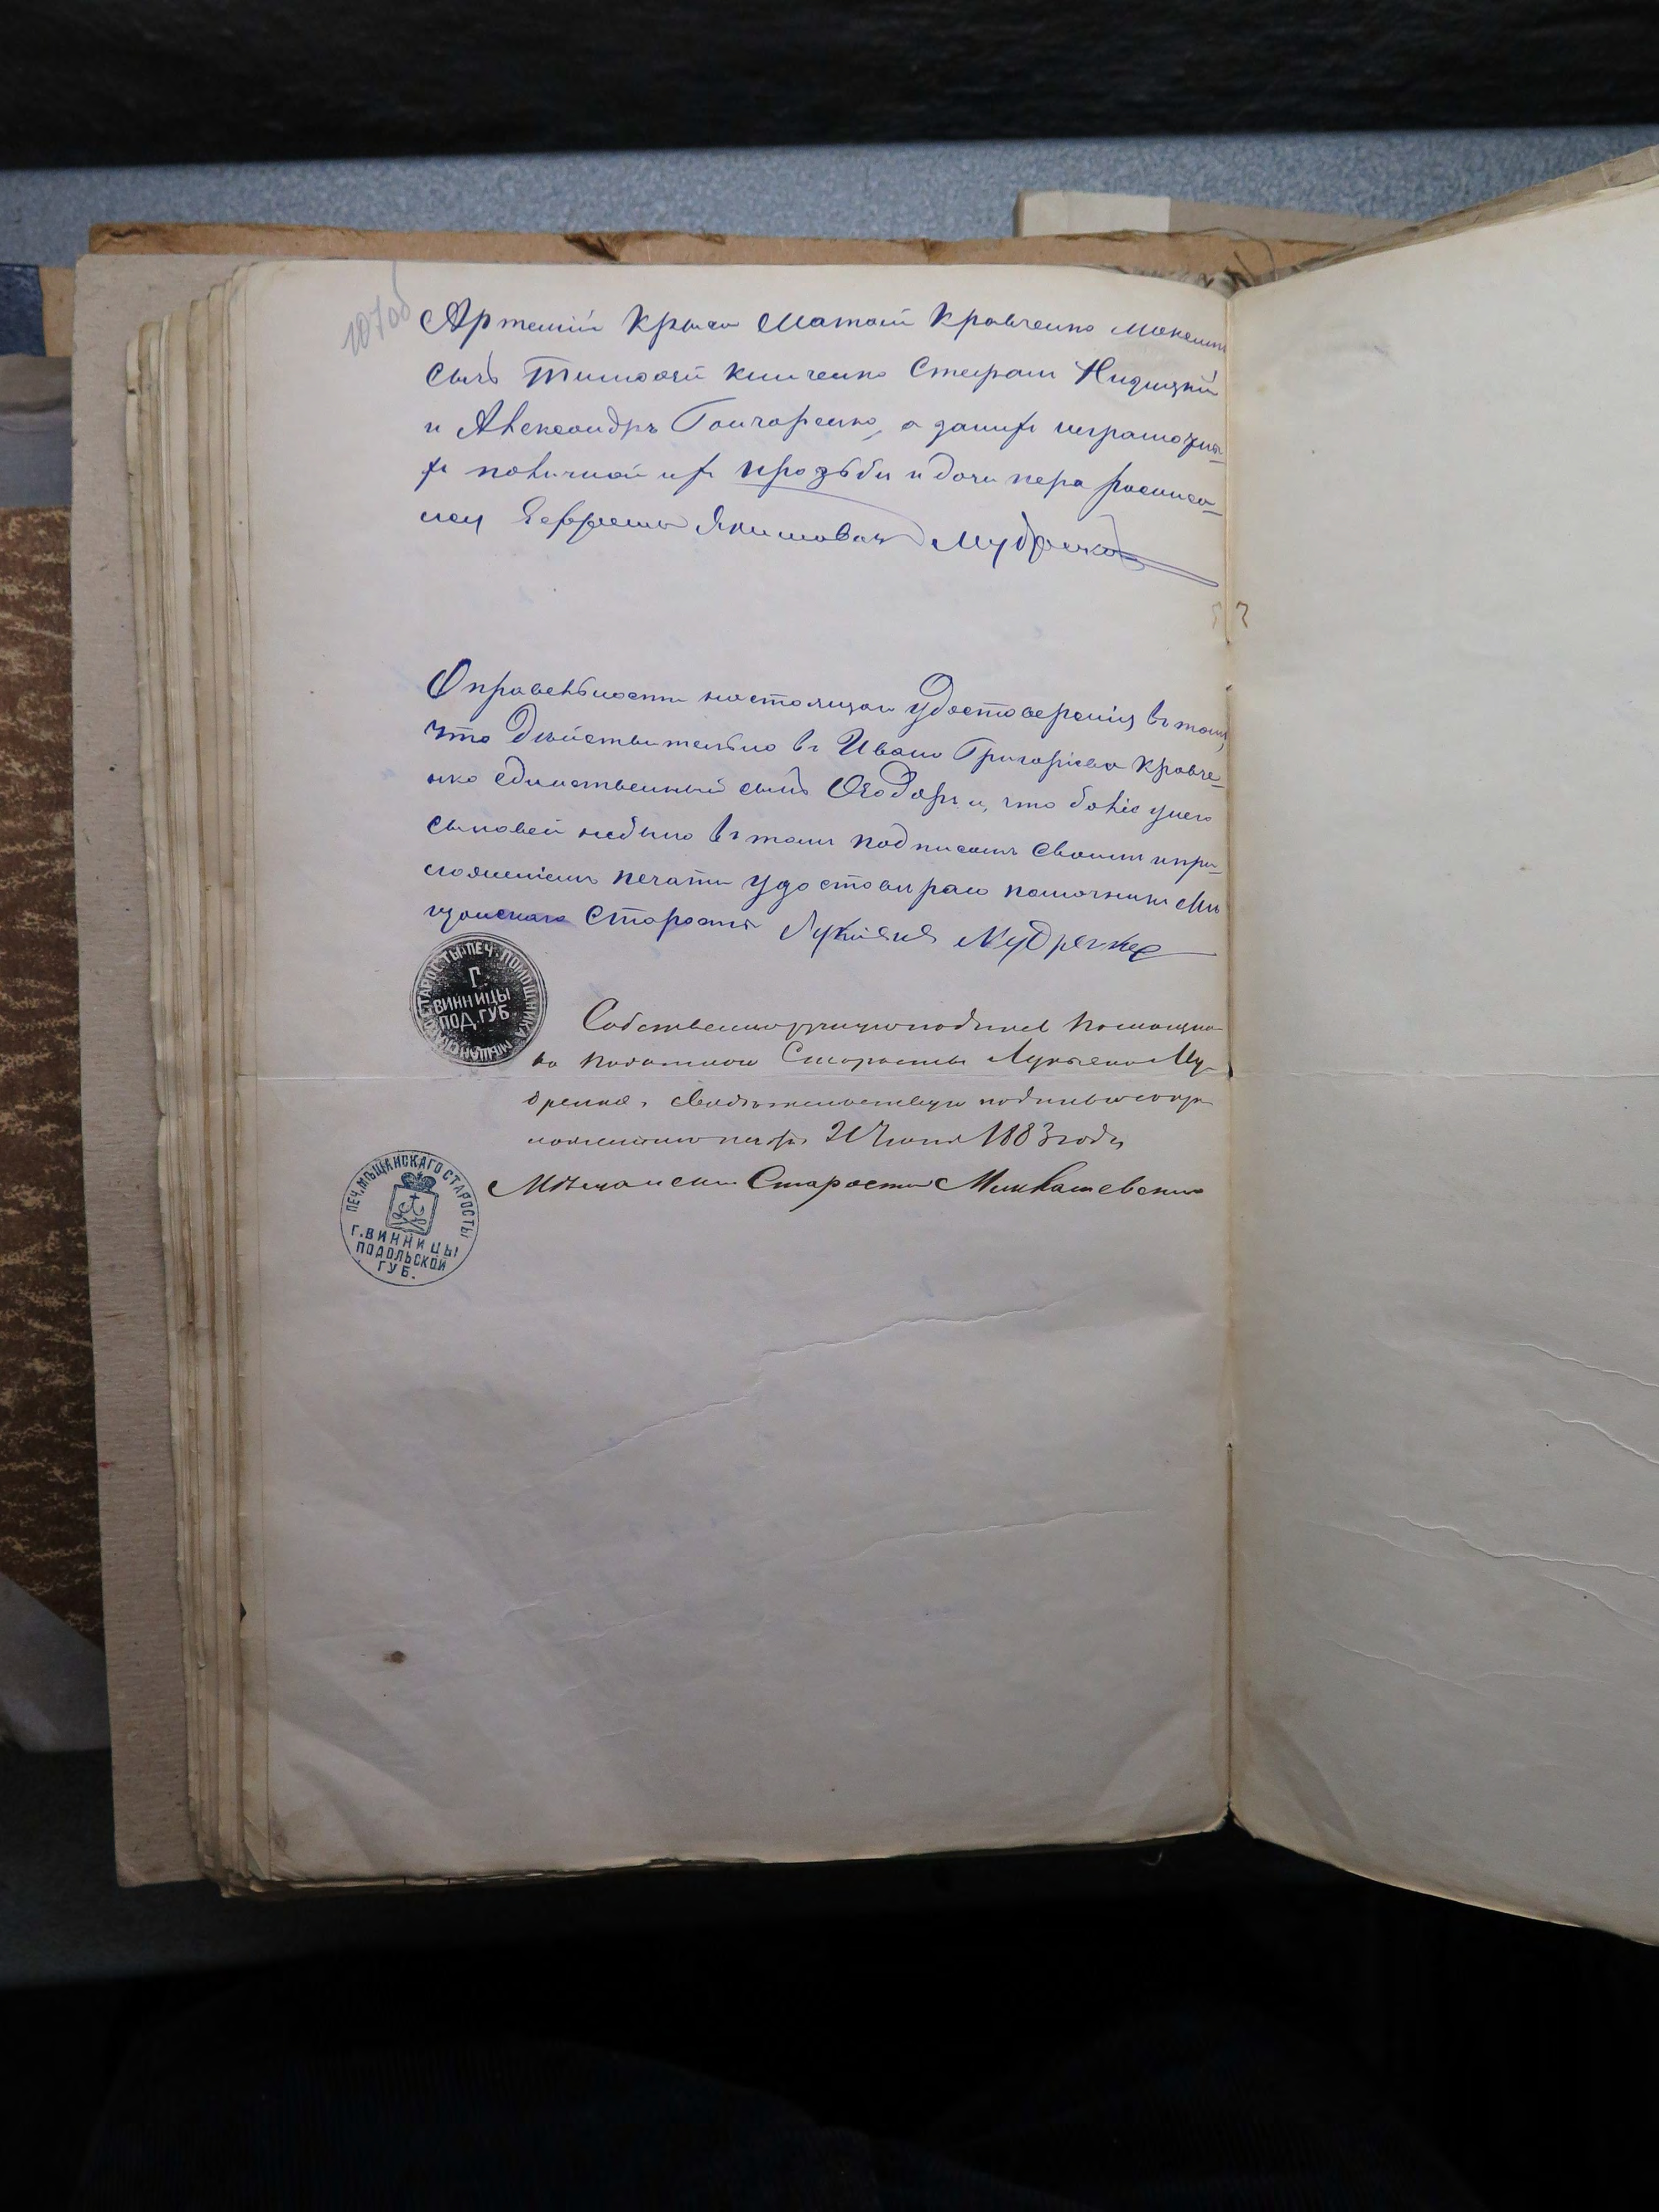 107об
Артемій Крыса Матвій Кравченко
Сычъ Тимофей Климченко Стефан
и Александръ Гончаренко, а за них неграмотны-
х по личной их прозьби и дачи пера росписа-
лся Ефремъ Якимовъ Мудренко
О правельности настоящаго удостоверенія въ томъ,
что Дѣйствительно въ Ивана Григорієва Кравче-
нко единственный сынъ Ѳеодоръ и, что боліе унего
сыновей небыло въ томъ подписомъ своимъ и при-
ложеніемъ печати удостовираю помочникъ Мѣ
щанскаго Старосты Лукіянъ Мудренко
МѢЩАНСКАГО СТАРОСТЫ ПЕЧ. ПОМОЩНИКА
Г.
ВИННИЦЫ
ПОД. ГУБ.
Собственноручную подпись Помощни-
ка Старосты Лукьяна Му-
дренко, свидѣтельствую подписью с при-
ложениемъ печати 1883 года
Мѣщанский Староста
ПЕЧ. МѢЩАНСКАГО СТАРОСТЫ
Г. ВИННИЦЫ
ПОДОЛЬСКОЙ
ГУБ.